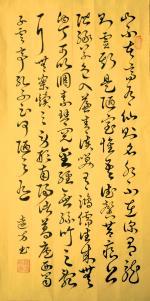 山不在高有仙則名水不在深有龍
則靈斯是陋室惟吾德馨苔痕上
階綠草色入簾青談笑有鴻儒往來無
白丁可以調素琴閱金經無絲竹之亂
耳無案牘之勞形南陽諸葛廬西蜀
子雲亭孔子云何陋之有